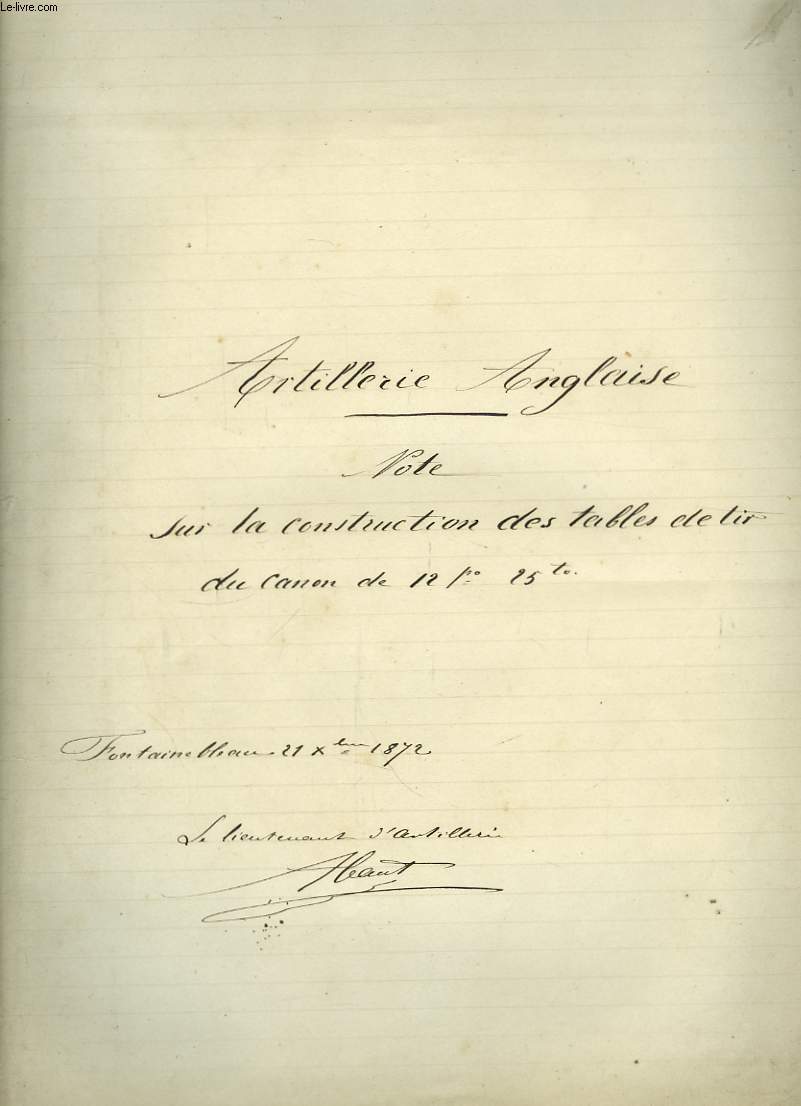 Le-livre.com
Artillerie Anglaise
Note
sur la construction des tables de tir
du canon de 12 po 25to.
Fontainebleau 21 Xbre 1872
Le lieutenant d'Artillerie